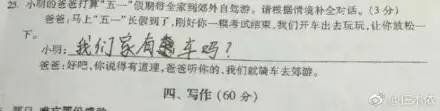 23. 小明的爸爸打算“五一”假期每全家到郊外自游。请根据情境补全对话。(3分)
爸爸:马上“五一”长假到了,刚好你一模考试结束,我们开车出去玩玩,让你放松一
下。
小明:我们家有车吗?
爸爸:好吧,你说得有道理,爸爸听你的,我们就骑车去郊游。
四、写作(60分)